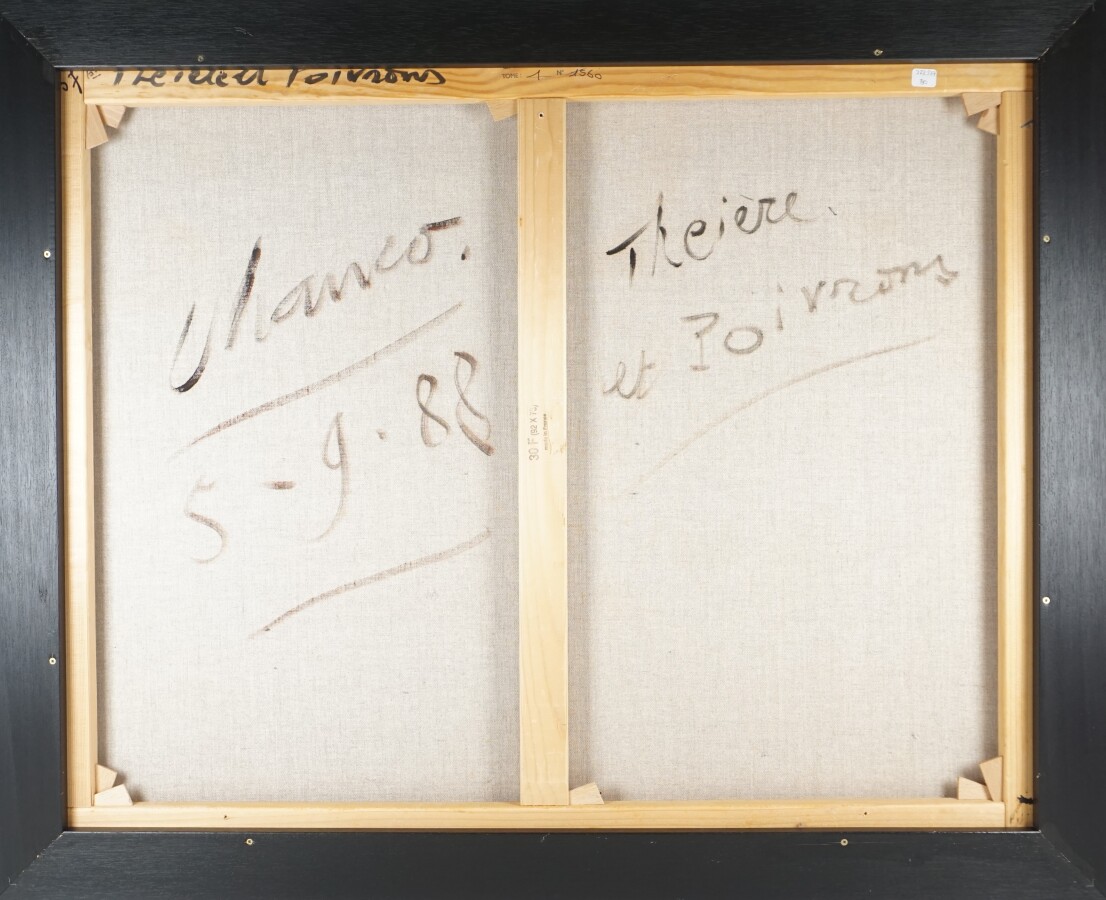 Theière et Poivrons
TOME: 1 N° 1560
Chanco.
5-9.88
Theière.
et Poivrons
30 F (92 X 73)